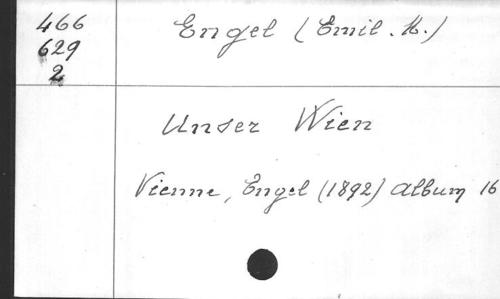 466
629
2
Engel (Emil. M.)
Unser Wien
Vienne, Engel (1892) album 16